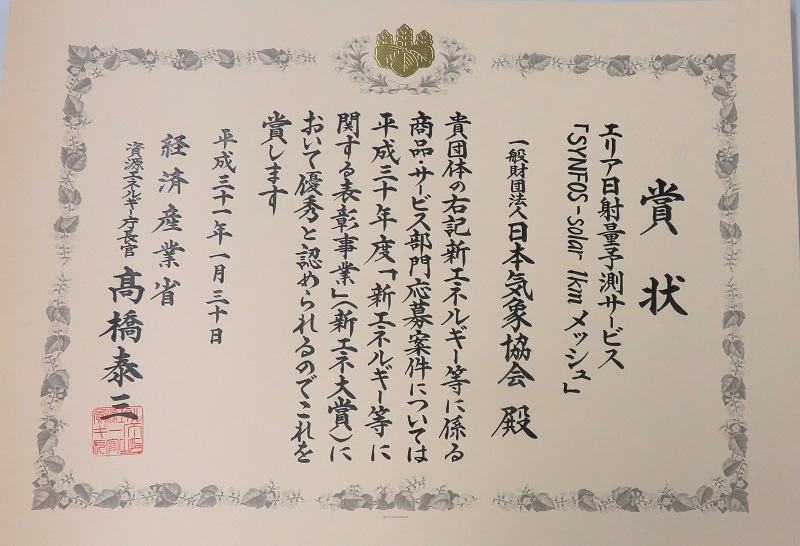 賞状
エリア日射量予測サービス
「SYNFOS-solar 1kmメッシュ」
一般財団法人日本気象協会 殿
貴団体の右記新エネルギー等に係る
商品・サービス部門応募案件については
平成三十年度「新エネルギー等に
関する表彰事業」(新エネ大賞)に
おいて優秀と認められるのでこれを
賞します
平成三十一年一月三十日
経済産業省
資源エネルギー庁長官 髙橋泰三